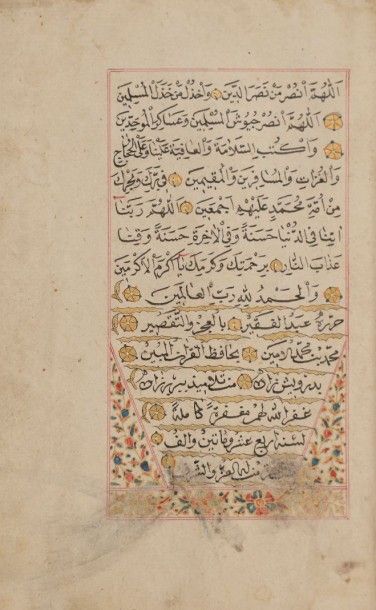 اَللّٰهُمَّ اَنْصُرْ مَنْ نَصَرَ الدِّينَ وَاخْذُلْ مَنْ خَذَلَ الْمُسْلِمِينَ
اَللّٰهُمَّ اَنْصُرْ جُيُوشَ الْمُسْلِمِينَ وَعَسَاكِرَ الْمُوَحِّدِينَ
وَاكْتُبِ السَّلَامَةَ وَالْعَافِيَةَ عَلَيْنَا وَعَلَى الْحُجَّاجِ
وَالْغُزَاتِ وَالْمُسَافِرِينَ وَالْمُقِيمِينَ فِى بَرِّكَ وَبَحْرِكَ
مِنْ اُمَّةِ مُحَمَّدٍ عَلَيْهِمْ اَجْمَعِينَ اَللّٰهُمَّ رَبَّنَا
اٰتِنَا فِى الدُّنْيَا حَسَنَةً وَفِى الْاٰخِرَةِ حَسَنَةً وَقِنَا
عَذَابَ النَّارِ بِرَحْمَتِكَ وَكَرَمِكَ يَا اَكْرَمَ الْاَكْرَمِينَ
وَالْحَمْدُ لِلّٰهِ رَبِّ الْعَالَمِينَ
حرره عبد الفقير بالعجز والتقصير
محمد بن محمد الامين بحافظ القرآن المبين
بدرويش زاده من تلاميذ
غفر الله لهم مغفرة كاملة
لسنة اربع عشر ومائتين والف
من له العز والشرف